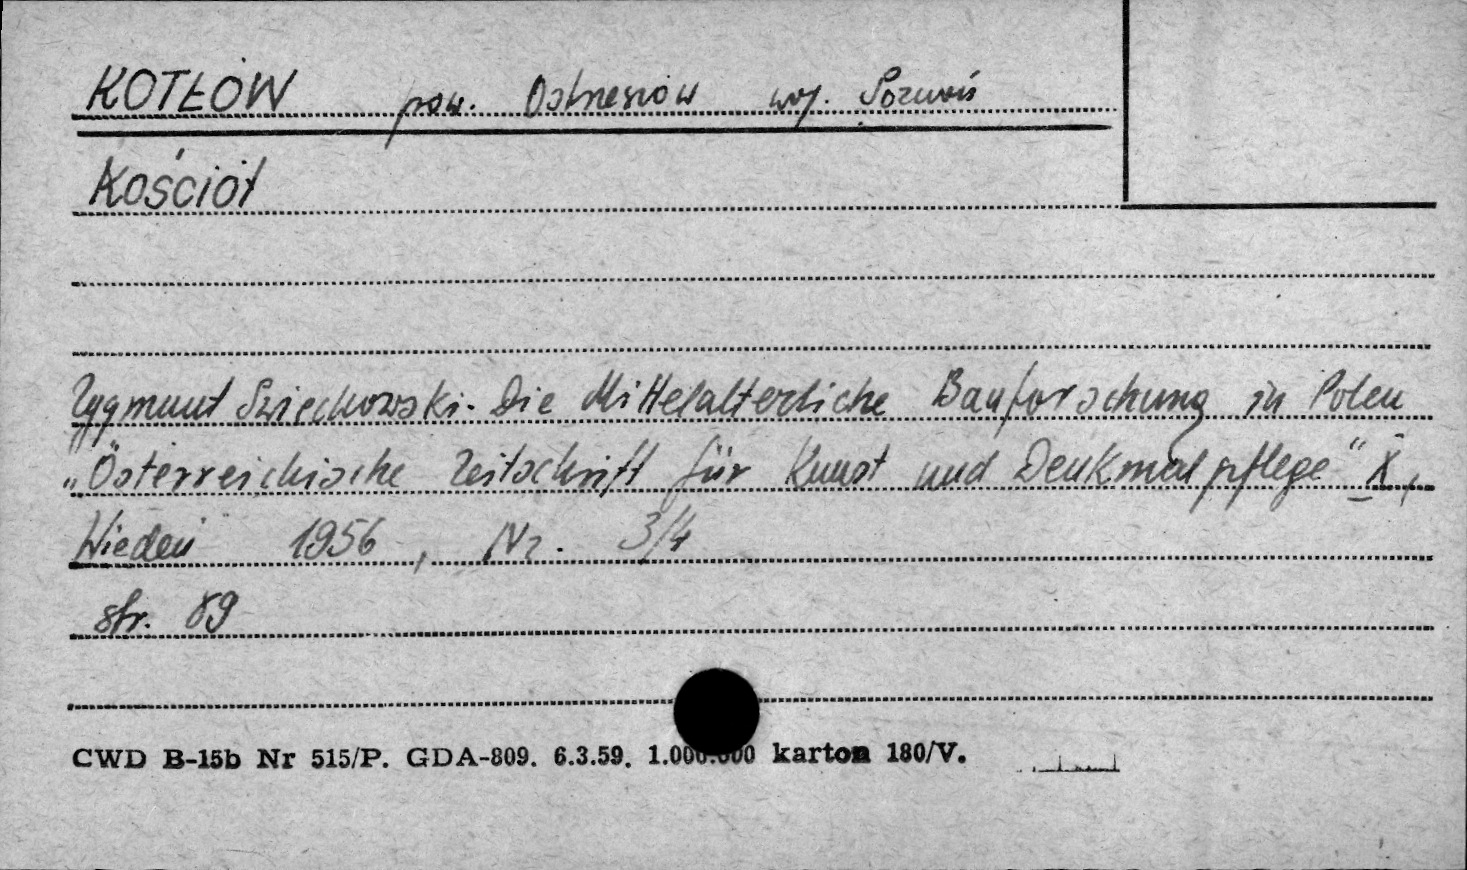 KOTŁÓW pow. Ostrzeszów woj. Poznań
Kościół
Zygmunt Święchowski. Die Mittelalterliche Bauforschung in Polen
„Österreichische Zeitschrift für Kunst und Denkmalpflege" X,
Wiedeń 1956, Nr. 3/4
str. 89
CWD B-15b Nr 515/P. GDA-809. 6.3.59. 1.000.000 karton 180/V.